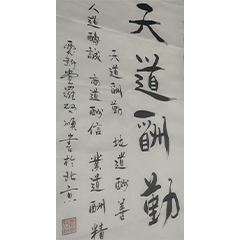 天道酬勤
天道酬勤 地道酬善
人道酬誠 商道酬信 業道酬精
愛新覺羅 書於北京